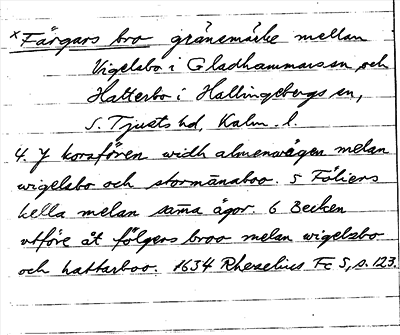 x Färgars bro gränsmärke mellan
Vigelsbo i Gladhammars sn, och
Hatterbo i Hallingebergs sn,
S. Tjusts hd, Kalm. l.
4. J korsfören widh almenwägen melan
wigelsbo och stormänaboo. 5 Fäliers
kella melan sama ägor. 6 Becken
utföre åt fölgers broo melan wigelsbo
och hattarboo. 1634 Rhezelius Fc 5, s. 123.